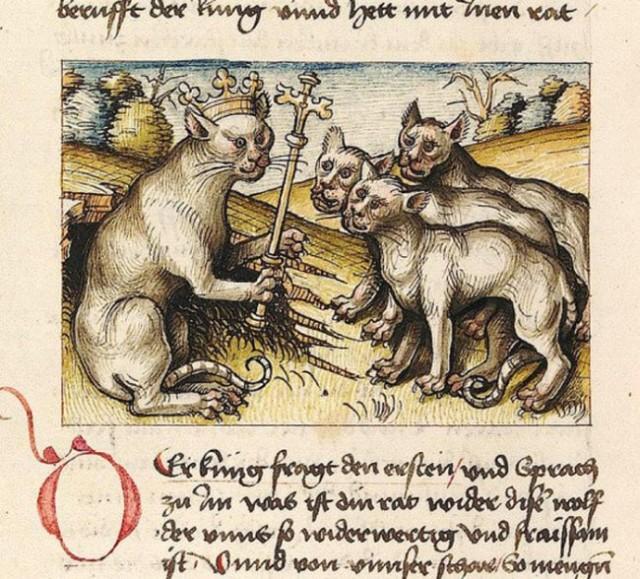 berüfft der küng vnnd hett mit Inen rat /
DEr küng fragt den ersten / vnd Sprach
zu Im was ist din rat wider dise wolf
der vnns so widerwertig vnd fraissam
ist. Vnnd von vnnser schar / So mengen